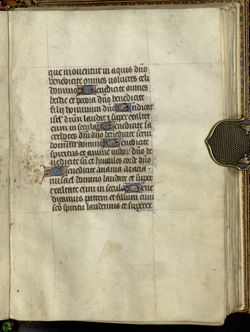 que moventur in aquis dño
benedicite omnes volucres celi
domino Benedicite omnes
bestie et pecora dño benedicite
filii hominum dño Benedicat
isrl dñm laudet et super exaltet
eum in secula Benedicite sa
cerdotes dñi dño benedicite servi
domini domino Benedicite
spiritus et anime iustor dño be
nedicite sc̃i et humiles corde dño
Benedicite anania azaria
misael domino laudate et supex
exaltate eum in secula Bene
dicamus patrem et filium cum
sc̃o spiritu laudemus et superex